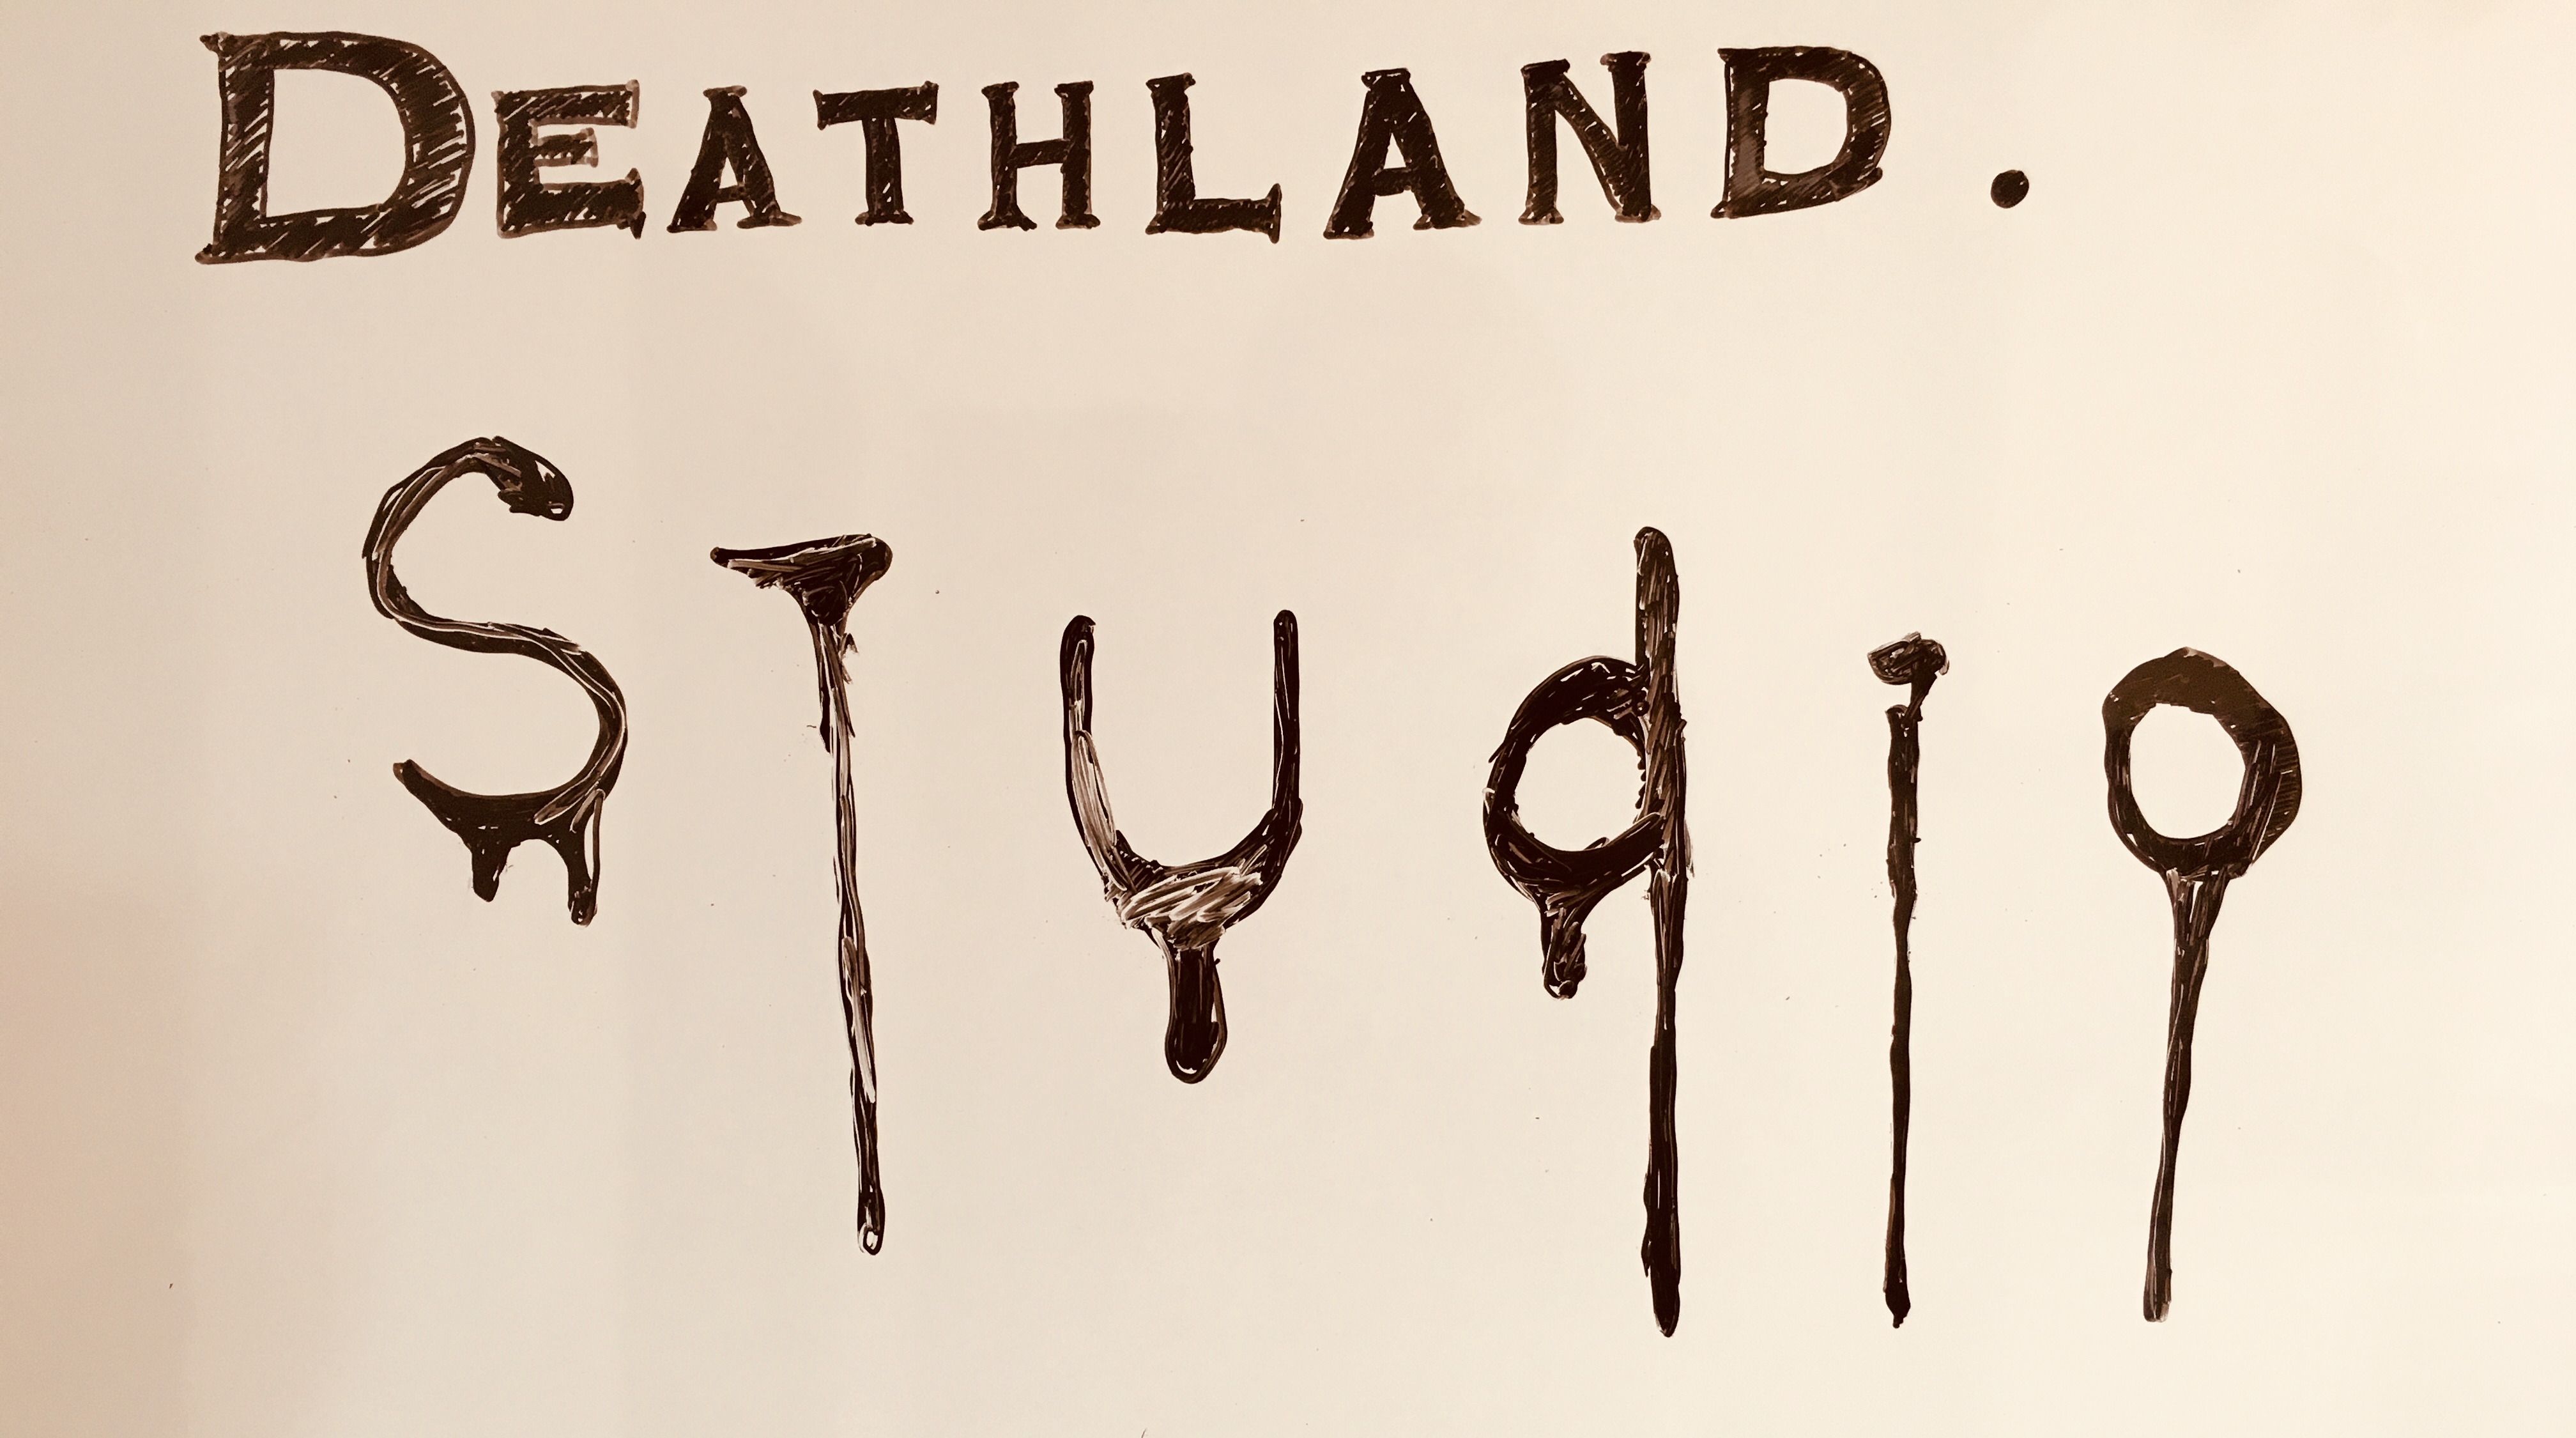 DEATHLAND.
Studio